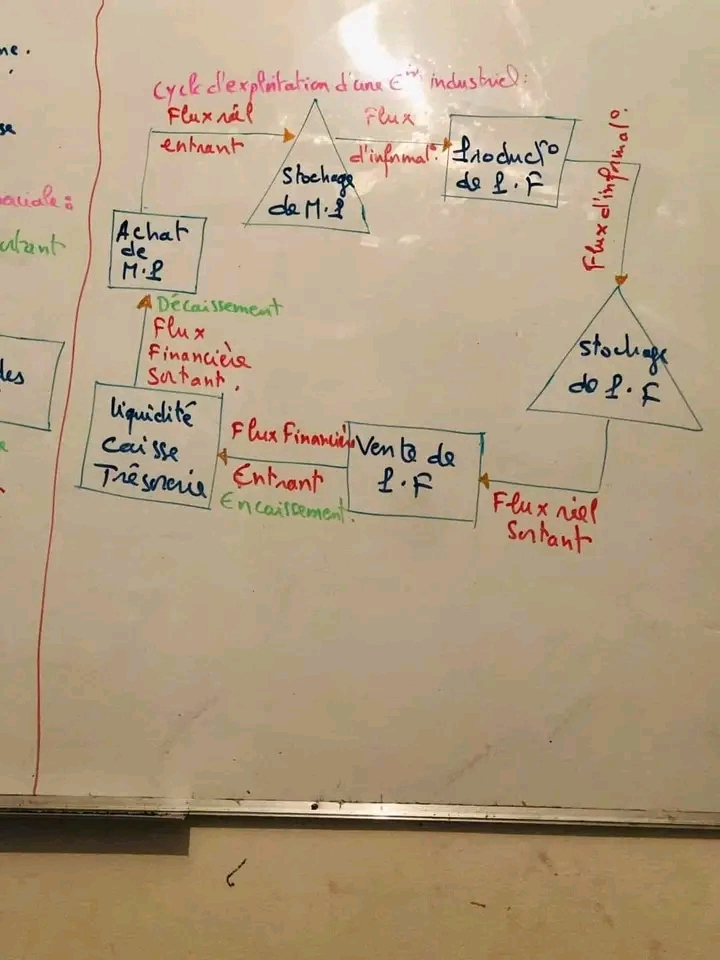 me.
se
Cycle d'exploitation d'une Eˢᵉ industriel:
Flux réel
entrant
Flux
d'informat°
Product°
de P.F
Flux d'informat°
Stockage
de M.P
Achat
de
M.P
ortant
Décaissement
Flux
Financière
Sortant.
Stockage
de P.F
des
liquidité
Caisse
Trésorerie
Flux Financière
Entrant
Encaissement.
Vente de
P.F
Flux réel
Sortant